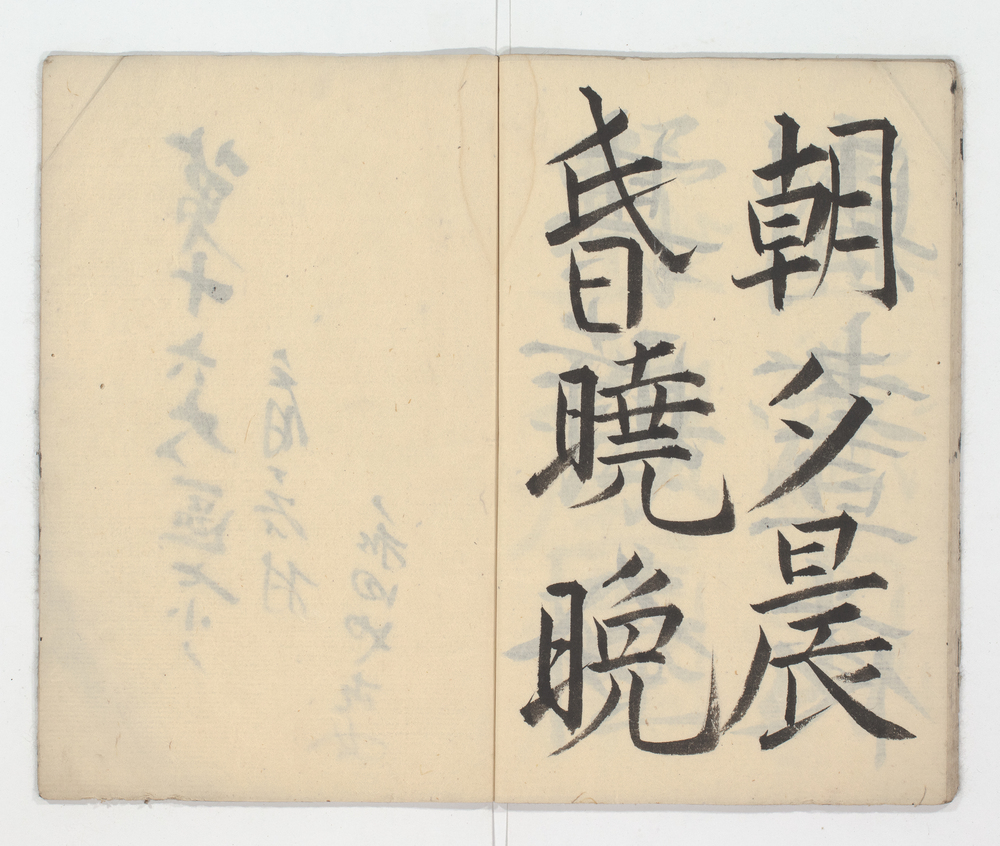 朝夕晨
昏曉晩